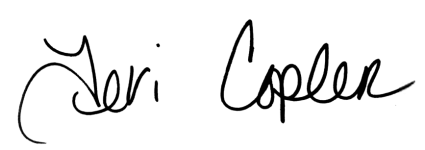 Teri Copler